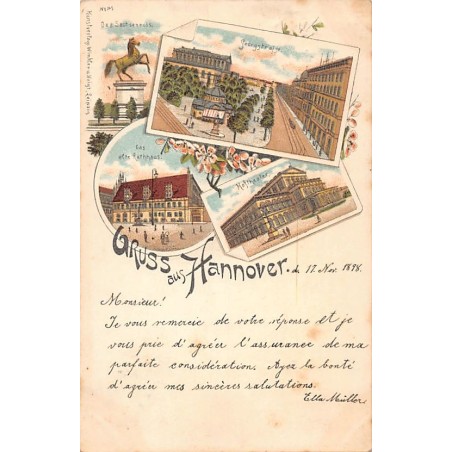 Das Sachsenross.
Georgstrasse
Das alte Rathhaus.
Hoftheater.
Gruss aus Hannover. d. 17. Nov. 1898.
Monsieur!
Je vous remercie de votre réponse et je
vous prie d'agréer l'assurance de ma
parfaite considération. Ayez la bonté
d'agréer mes sincères salutations.
Ella Müller.